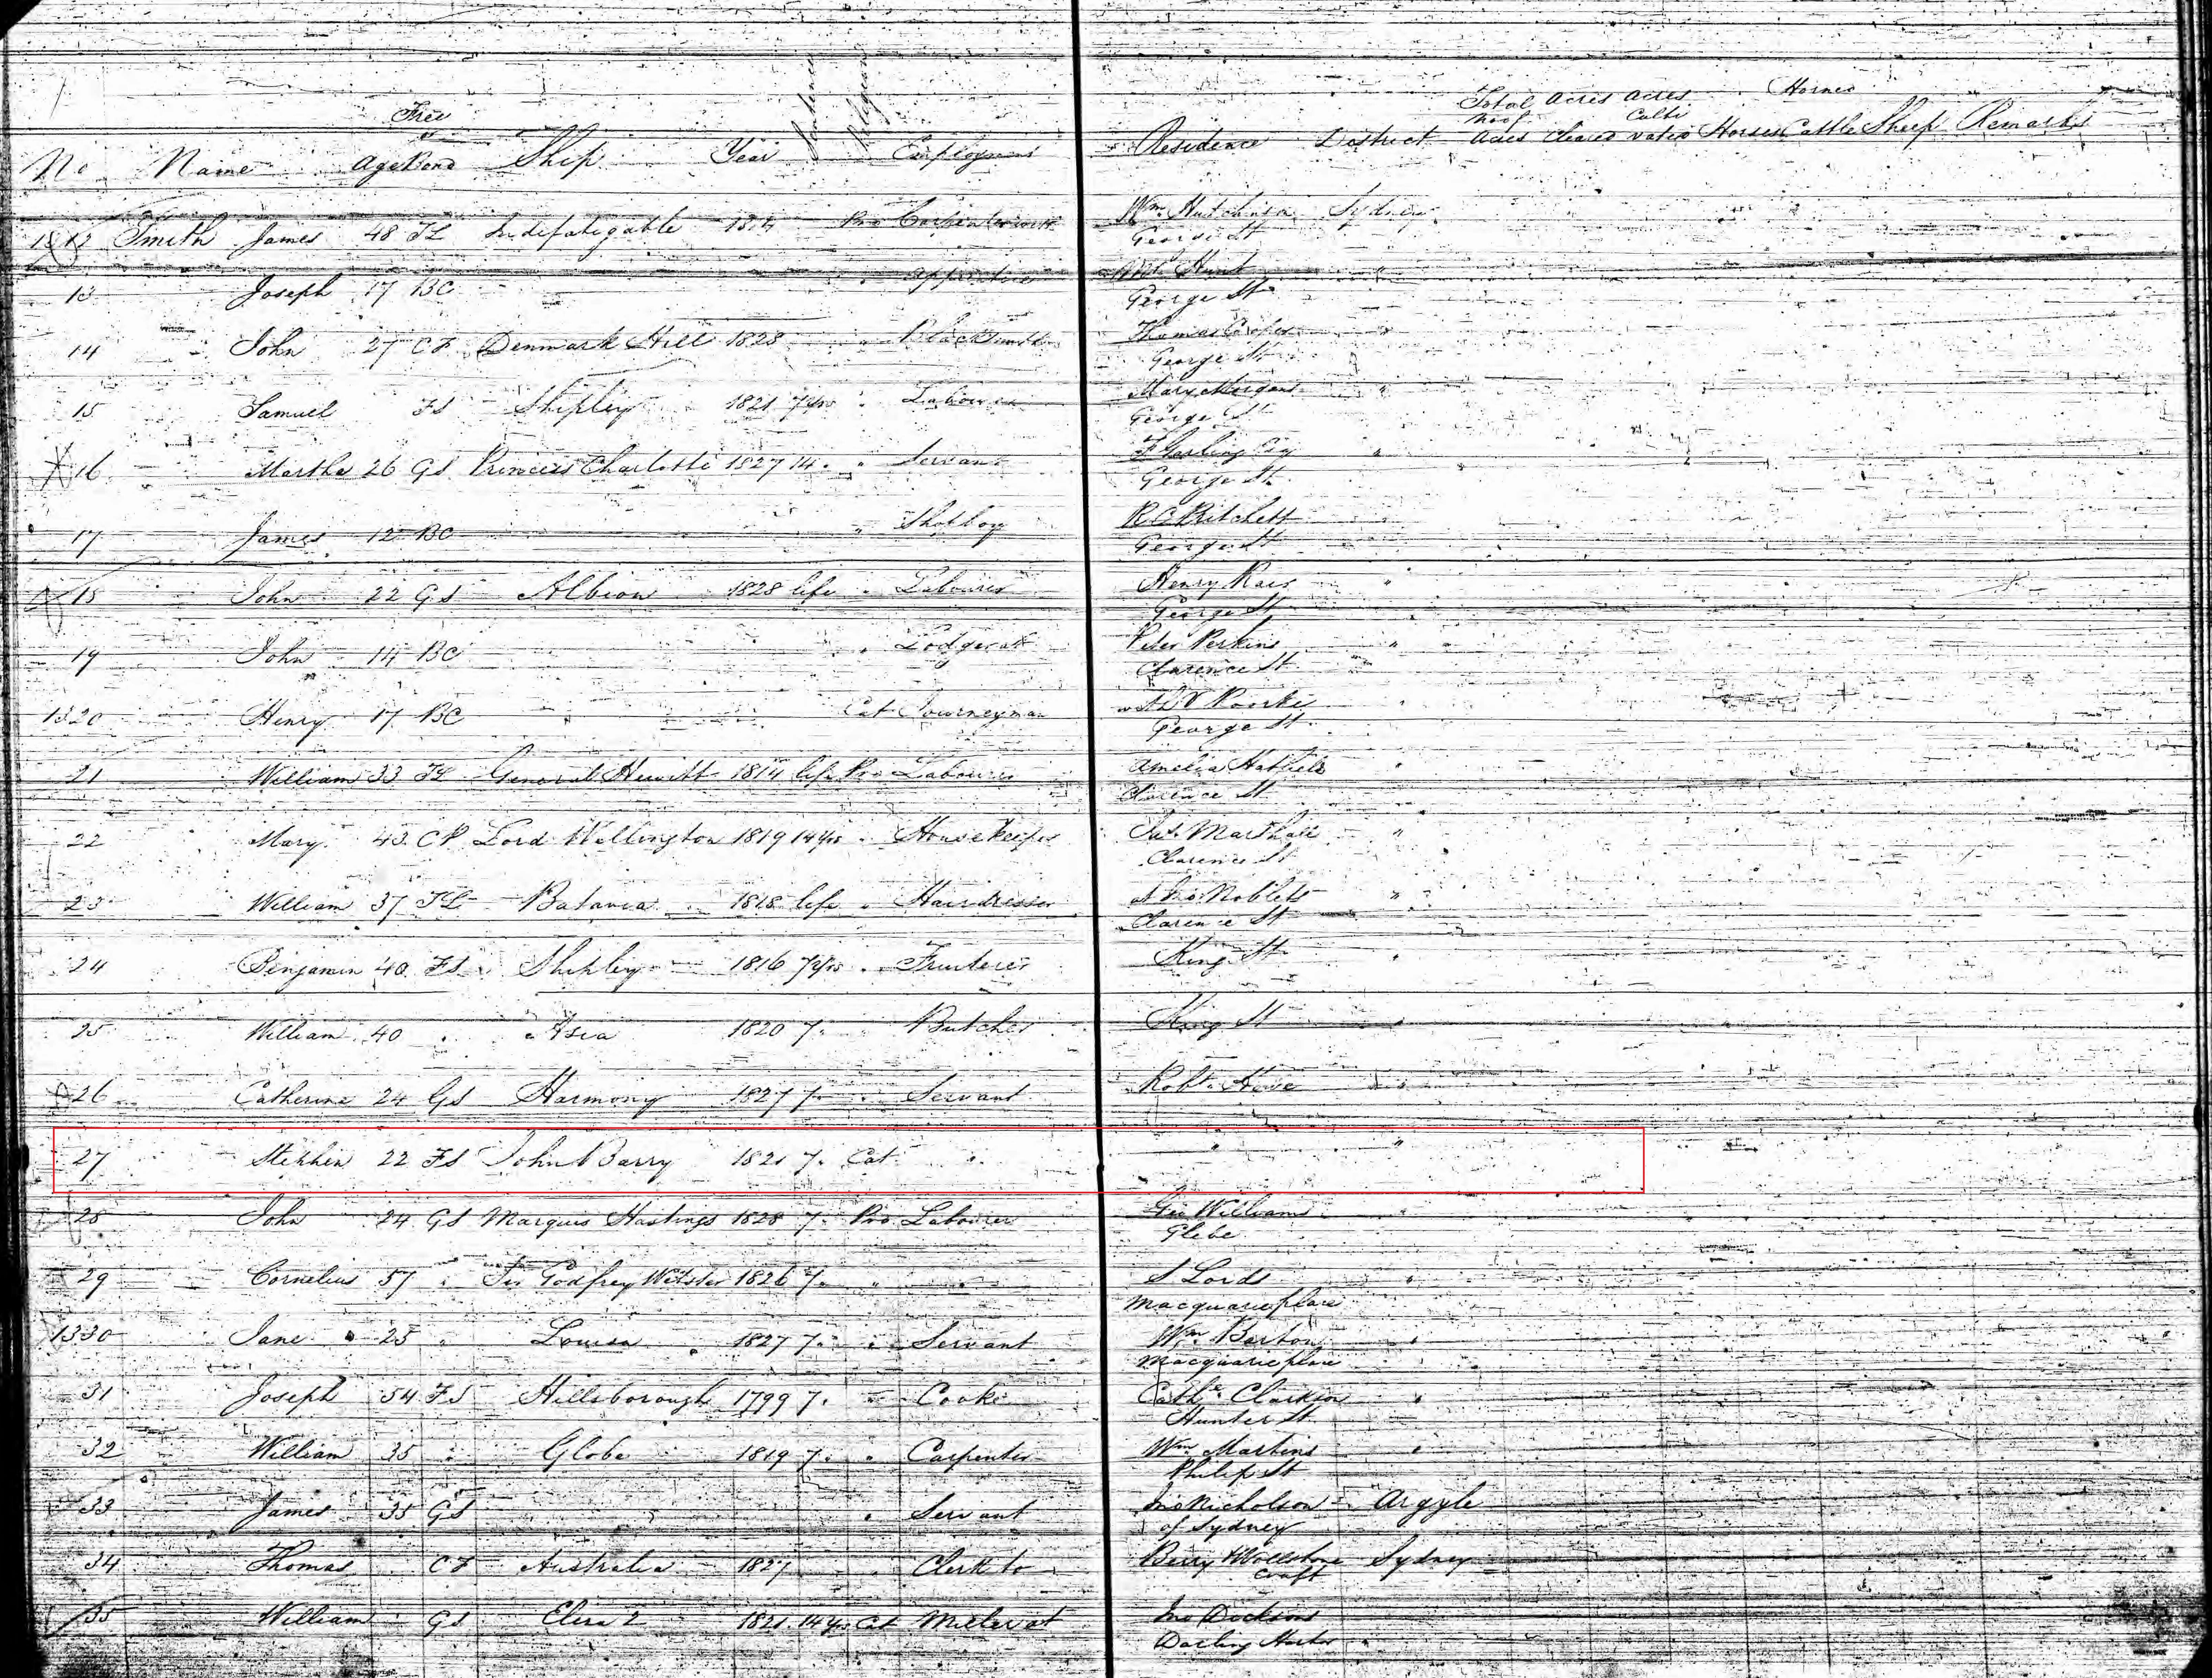 Free or Sentence Religion Total No of Acres Acres Horned
No Name Age Bond Ship Year Employment Residence District Acres Cleared Cultivated Horses Cattle Sheep Remarks
1312 Smith James 48 TL Indefatigable Pro Carpenter Wm. Hutchinson Sydney
George St
13 Joseph 17 BC " apprentice Hunt "
George St
14 John 27 CF Denmark Hill 1828 " Blacksmith Thomas Cooper "
George St
15 Samuel FS Shipley 1821 7 yrs " Labourer Mary "
George St
16 Martha 26 GS Princess Charlotte 1827 14 " " Servant Esq "
George St
17 James 12 BC " Shopboy R C Pritchett "
George St
18 John 22 GS Albion 1828 life " Labourer Henry "
George St
19 John 14 BC " Lodger at Peter Perkins "
Clarence St
1320 Henry 17 BC Cat Journeyman George St "
21 William 33 TL General Hewitt 1814 life Pro Labourer Amelia "
Clarence St
22 Mary 43 CP Lord Wellington 1819 14 yrs " Housekeeper "
Clarence St
23 William 37 TL Batavia 1818 life " Hairdresser at Jno Noblets "
Clarence St
24 Benjamin 40 FS Shipley 1816 7 yrs " Fruiterer King St "
25 William 40 " Asia 1820 7 " " Butcher King St "
26 Catherine 24 GS Harmony 1827 7 " " Servant Robt. Howe "
27 Stephen 22 FS John Barry 1821 7 " Cat " " "
28 John 24 GS Marquis Hastings 1828 7 " Pro Labourer Geo Williams "
Glebe
29 Cornelius 57 " Sir Godfrey Webster 1826 7 " " " S Lords "
Macquarie place
1330 Jane 25 " Louisa 1827 7 " " Servant Wm. Barton "
Macquarie place
31 Joseph 54 FS Hillsborough 1799 7 " " Cook Cathe. "
Hunter St
32 William 35 " Globe 1819 7 " " Carpenter Wm. Martins "
Philip St
33 James 35 GS " Servant Jno Nicholson Argyle
of Sydney
34 Thomas CF Australia 1827 " Clerk to Berry & Wollstone Sydney
craft
35 William GS Eliza 2 1821 14 yrs Cat Miller at Jno Dicksons
Darling Harbor "